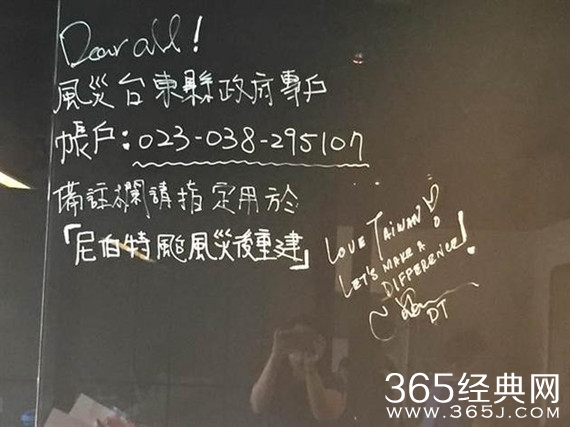 Dear all!
風災台東縣政府專戶
帳戶:023-038-295107
備註欄請指定用於
「尼伯特颱風災後重建」
LOVE TAIWAN
LET'S MAKE A
DIFFERENCE!
DT
365经典网
WWW.365J.COM